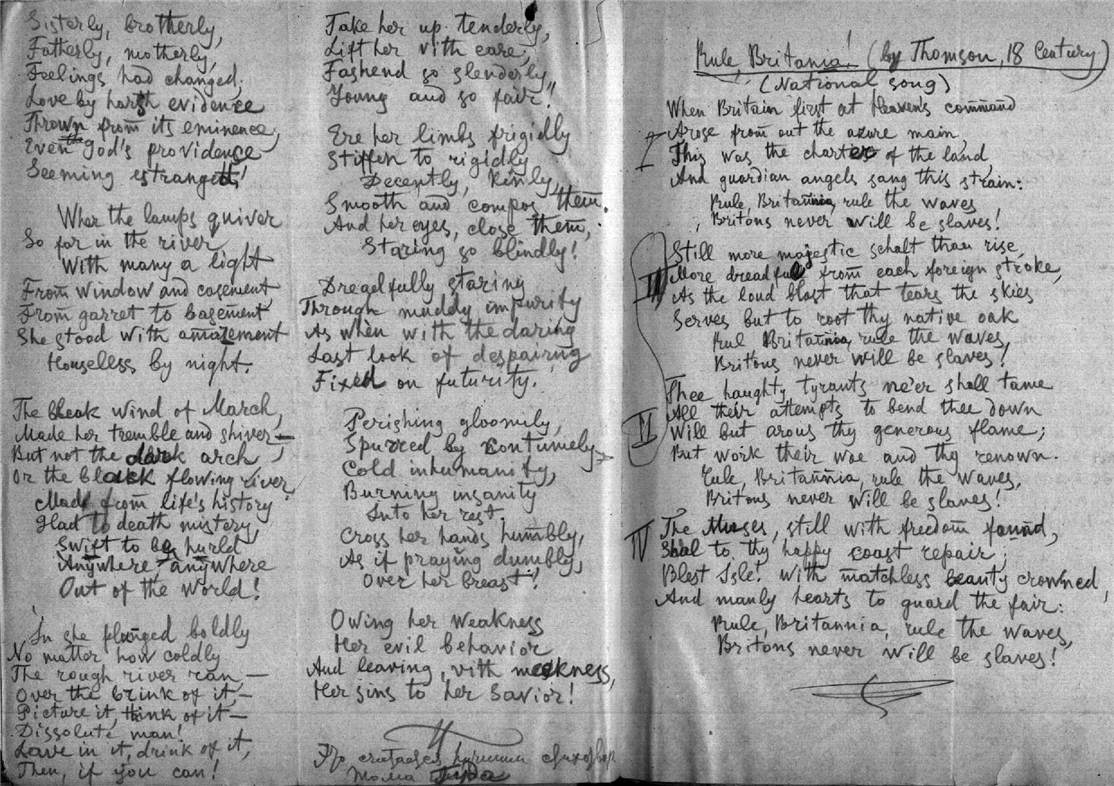 Sisterly, brotherly,
Fatherly, motherly,
Feelings had changed;
Love by harsh evidence
Thrown from its eminence,
Even the God's providence
Seeming estranged!
Wher the lamps quiver
So far in the river
With many a light
From window and casement
From garret to basement
She stood with amazement
Houseless by night.
The bleak wind of March,
Made her tremble and shiver—
But not the dark arch
Or the black flowing river,
Mad from life's history
Glad to death mistery
Swift to be hurld
Anywhere anywhere
Out of the world!
In she plunged boldly
No matter how coldly
The rough river ran—
Over the brink of it—
Picture it, think of it—
Dissolute man!
Lave in it, drink of it,
Then, if you can!
Take her up tenderly,
Lift her vith care;
Fashend so slenderly,
Young and so fair!
Ere her limbs frigidly
Stiffen to rigidly
Decently, kinly,
Smooth and compos them.
And her eyes, close them,
Staring so blindly!
Dreafully staring
Through muddy impurity
As when with the daring
Last look of despairing
Fixed on futurity.
Perishing gloomily,
Spurred by contumely,
Cold inhumanity,
Burning insanity
Into her rest.
Cross her hands humbly,
As if praying dumbly,
Over her breast!
Owing her weakness
Her evil behavior
And leaving, vith meekness,
Her sins to her Savior!
Томa Гуда
Rule, Britania! (by Thomson, 18 Century)
(National song)
When Britain first at Heaven's command
I
Arose from out the azure main
This was the charter of the land,
And guardian angels sang this strain:
Rule, Britannia, rule the waves
Britons never will be slaves!
Still more majestic schalt than rise,
III
More dreadful from each foreign stroke,
As the loud blast that tears the skies
Serves but to root thy native oak
Rul Britannia, rule the waves,
Britons never will be slaves!
Thee haughty tyrants ne'er shall tame
All their attempts to bend thee down
II
Will but arous thy generous flame;
But work their woe and thy renown.
Rule, Britannia, rule the waves,
Britons never will be slaves!
The Muses, still with freedom found,
IV
Shal to thy happy coast repair;
Blest Isle! with matchless beauty crowned,
And manly hearts to guard the fair:
Rule, Britannia, rule the waves,
Britons never will be slaves!